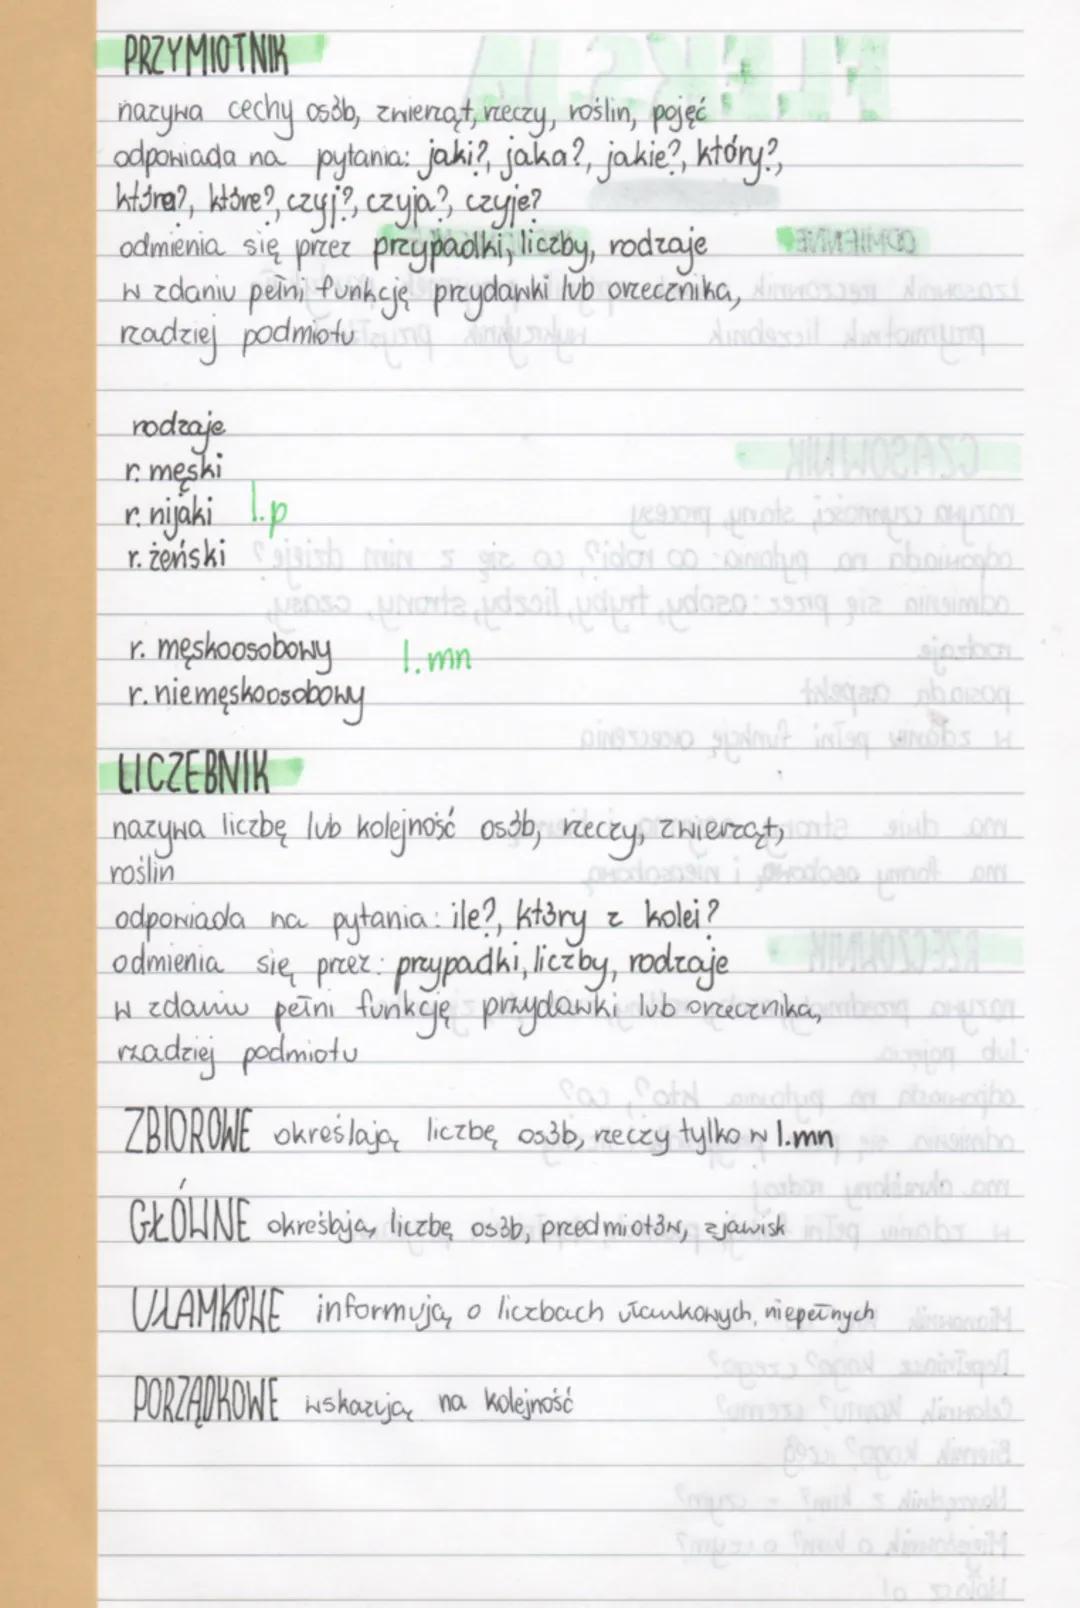 PRZYMIOTNIK
nazywa cechy osób, zwierząt, rzeczy, roślin, pojęć
odpowiada na pytania: jaki?, jaka?, jakie?, który?,
która?, które?, czyj?, czyja?, czyje?
odmienia się przez przypadki, liczby, rodzaje
w zdaniu pełni funkcję przydawki lub orzecznika,
rzadziej podmiotu
rodzaje
r. męski
r. nijaki l.p
r. żeński
r. męskoosobowy l.mn
r. niemęskoosobowy
LICZEBNIK
nazywa liczbę lub kolejność osób, rzeczy, zwierząt,
roślin
odpowiada na pytania: ile?, który z kolei?
odmienia się przez: przypadki, liczby, rodzaje
w zdaniu pełni funkcję przydawki lub orzecznika,
rzadziej podmiotu
ZBIOROWE określają liczbę osób, rzeczy tylko w l.mn
GŁÓWNE określają liczbę osób, przedmiotów, zjawisk
UŁAMKOWE informują o liczbach ułamkowych, niepełnych
PORZĄDKOWE wskazują na kolejność